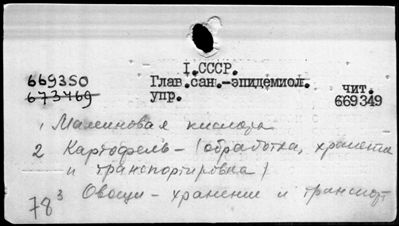 I.СССР.
669350 Глав.сан.-эпидемиол.
673769 упр. чит.
669349
1 Малеиновая кислота
2 Картофель – (обработка, хранение
и транспортировка)
3 Овощи – хранение и транспорт
78